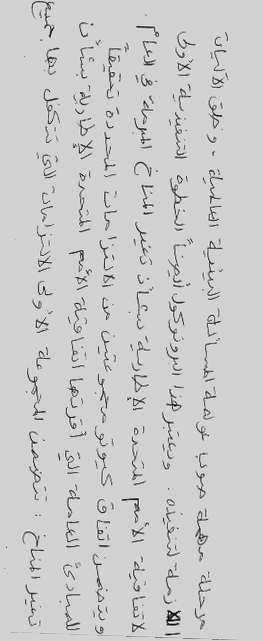 مرحلة مهمة صوب عولمة المسألة البيئية العالمية ، وخلق الآليات
اللازمة لتنفيذه . ويعتبر هذا البروتوكول أيضاً الخطوة التنفيذية الأولى
لاتفاقية الأمم المتحدة الإطارية بشأن تغير المناخ المبرمة في العام .
ويتضمن اتفاق كيوتو مجموعتين من الالتزامات المحددة تحقيقاً
للمبادئ العامة التي أقرتها اتفاقية الأمم المتحدة الإطارية بشأن
تغير المناخ : تتضمن المجموعة الأولى الالتزامات التي تتكفل بها جميع